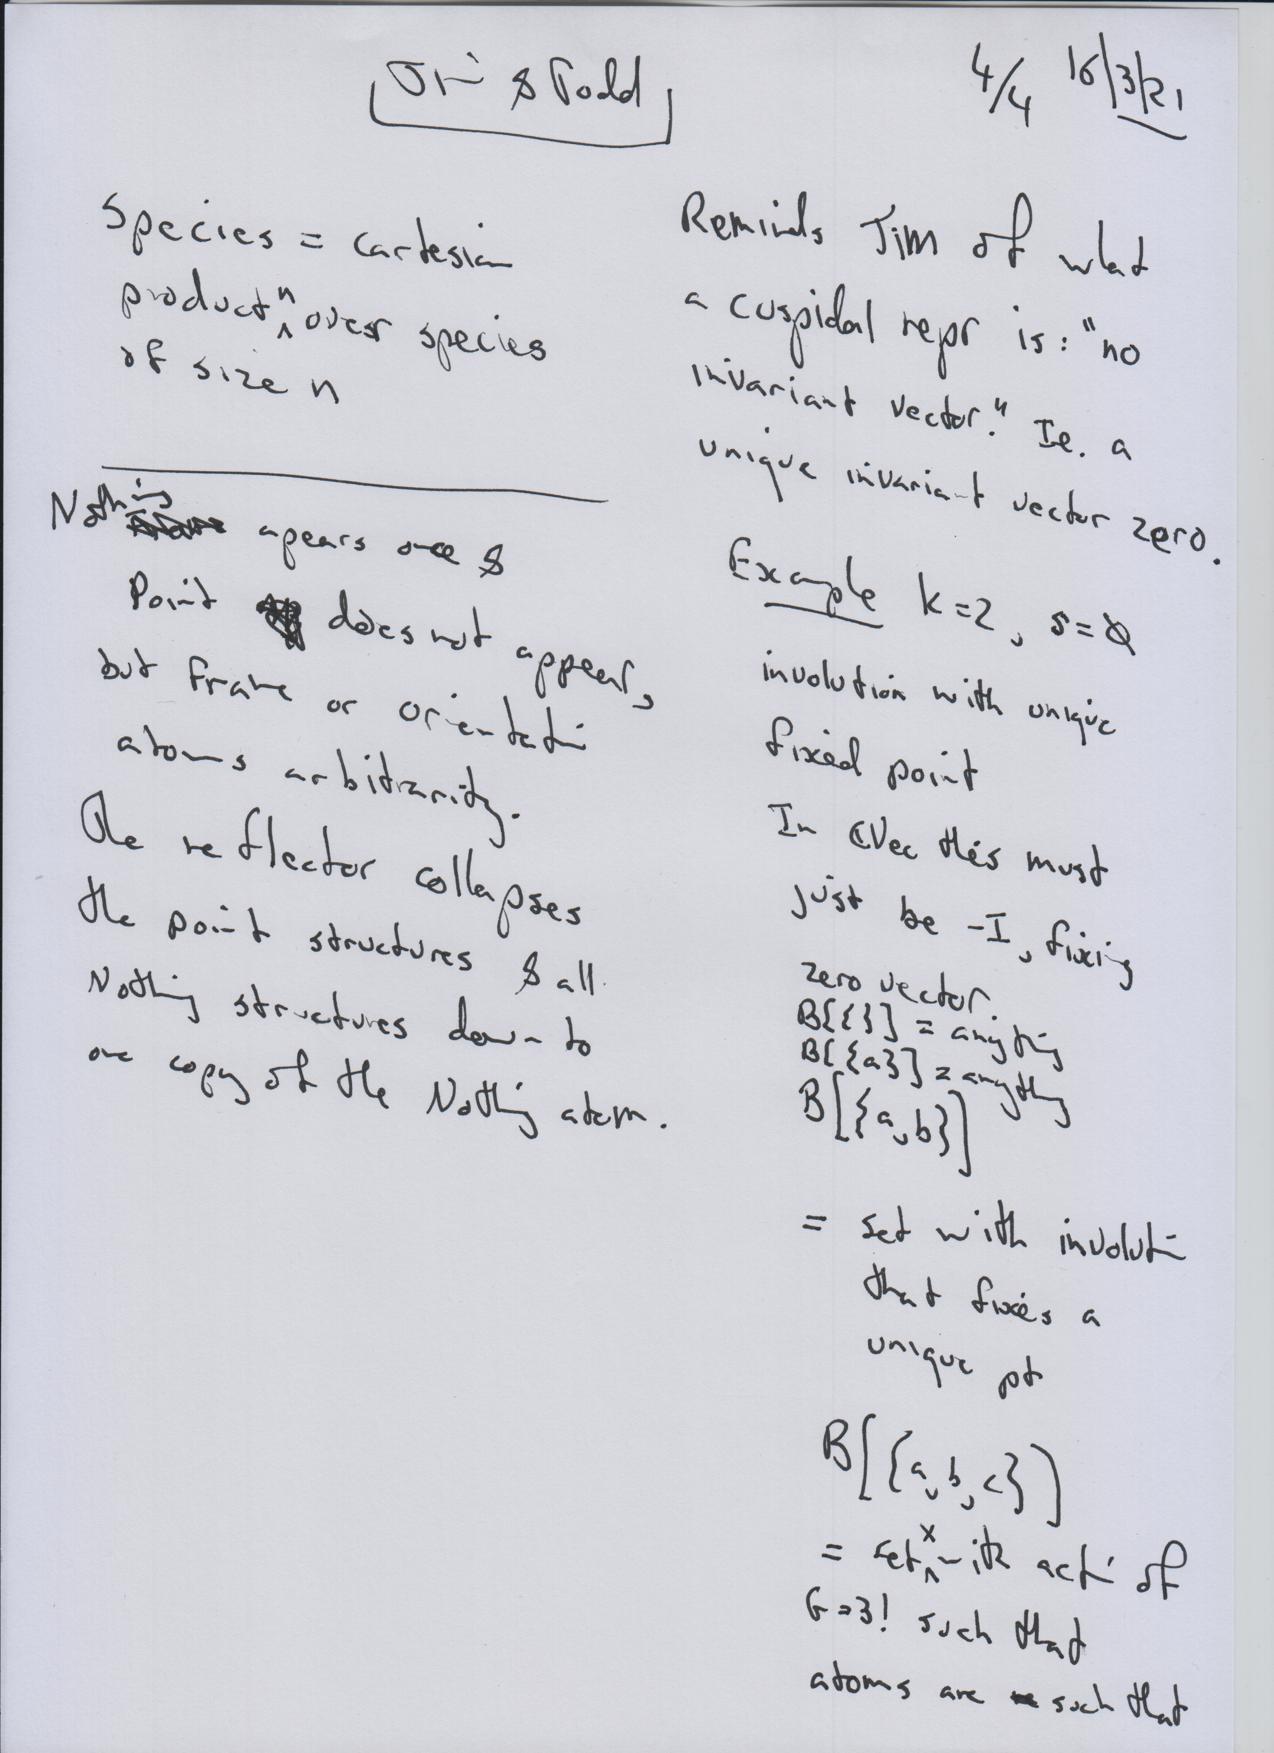 & Todd
4/4 16/3/21
Species = cartesian
product n over species
of size n
Nothing apears once &
Point does not appear,
but frame or orientati
atoms arbitrarity.
The reflector collapses
the point structures & all
Nothing structures down to
one copy of the Nothing atom.
Reminds Jim of what
a cuspidal repr is: "no
invariant vector." Ie. a
unique invariant vector zero.
Example k=2, s=0
involution with unique
fixed point
In CVec this must
just be -I, fixing
zero vector.
B[{}] = anything
B[{a}] = anything
B[{a,b}]
= set with involuti
that fixes a
unique pt
B[{a,b,c}]
= set X with acti of
G=3! such that
atoms are such that